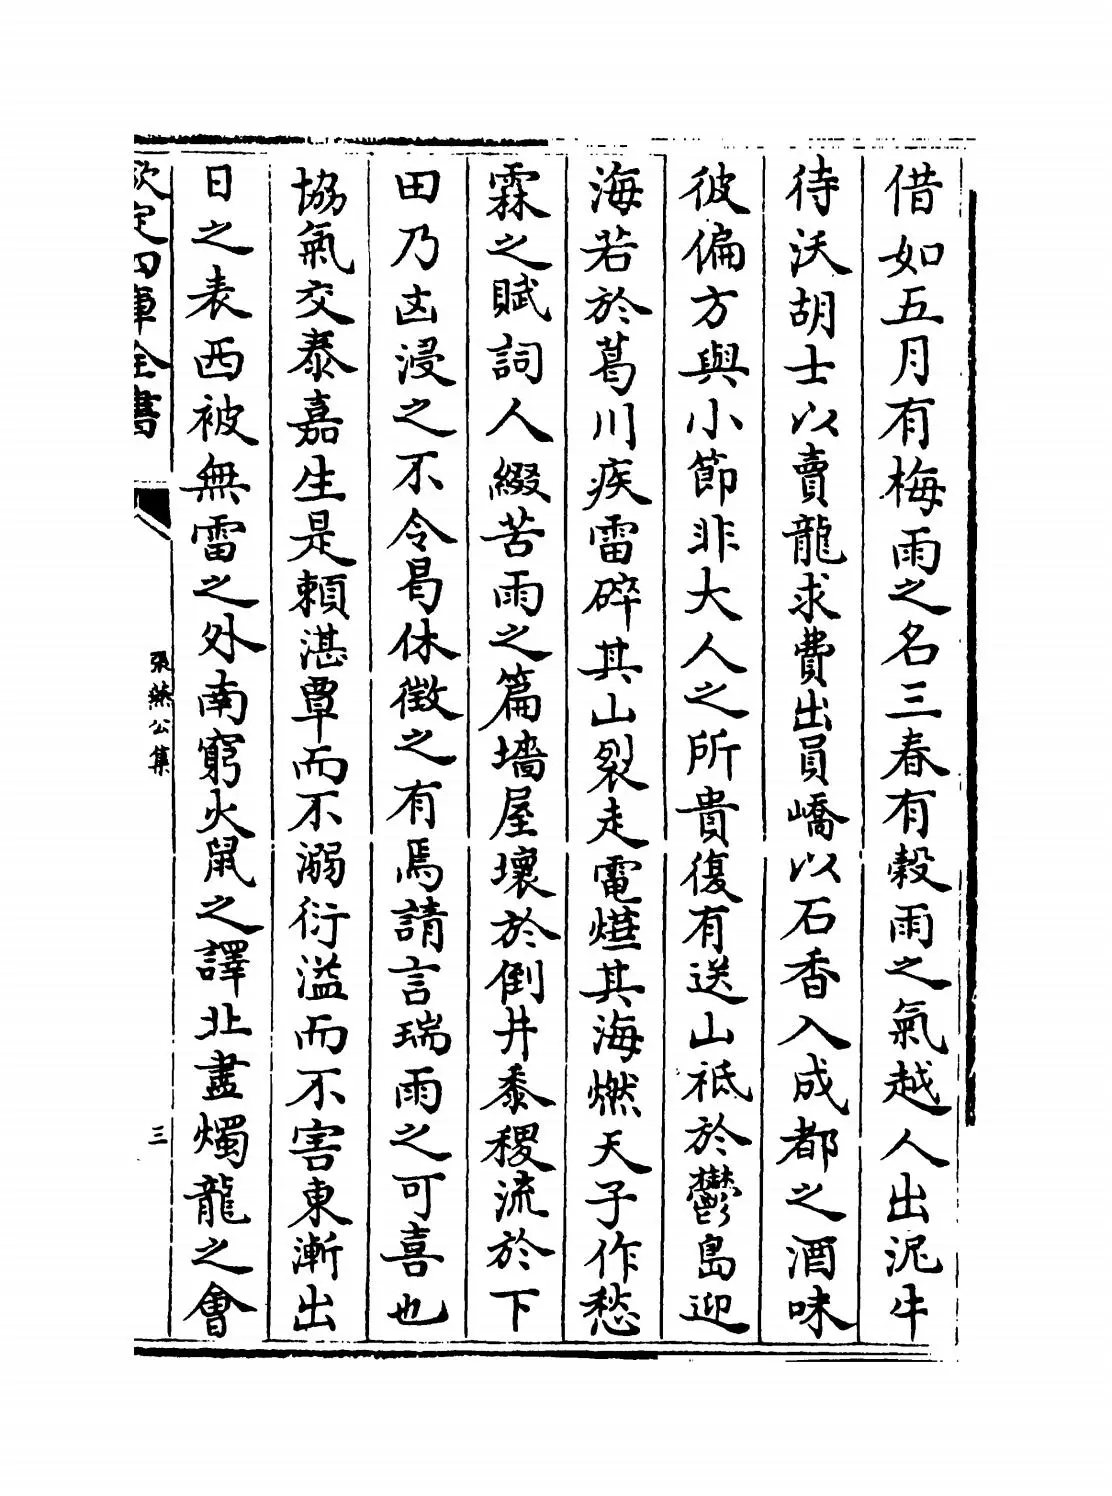 借如五月有梅雨之名三春有榖雨之氣越人出泥牛
待沃胡士以賣龍求費出員嶠以石香入成都之酒味
彼偏方與小節非大人之所貴復有送山祇於鬱島迎
海若於葛川疾雷碎其山裂走電其海燃天子作愁
霖之賦詞人綴苦雨之篇墻屋壞於倒井黍稷流於下
田乃㐫浸之不令曷休徵之有焉請言瑞雨之可喜也
協氣交泰嘉生是頼湛覃而不溺衍溢而不害東漸出
日之表西被無雷之外南窮火䑕之譯北盡燭龍之會
欽定四庫全書
張燕公集
三